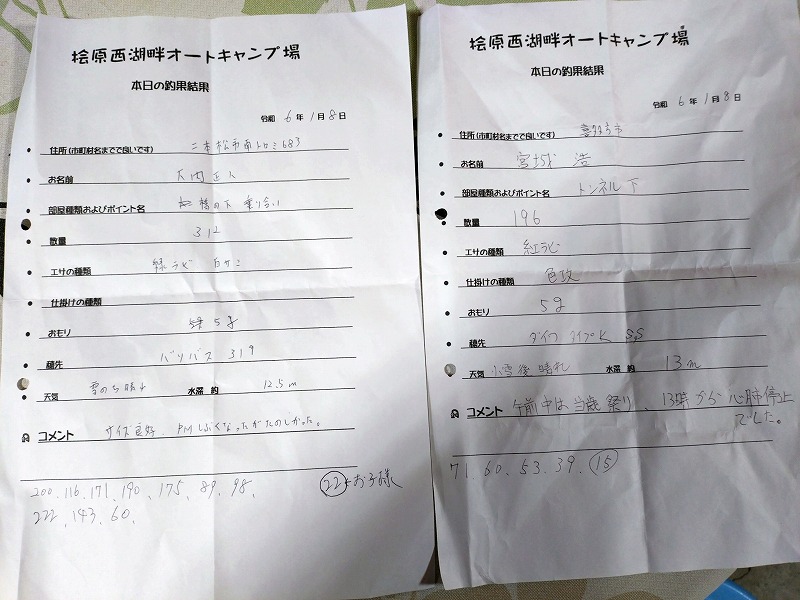 桧原西湖畔オートキャンプ場
本日の釣果結果
令和 6 年 1 月 8 日
住所(市町村名までで良いです) 二本松市
お名前 大内正人
部屋種類およびポイント名 橋の下 乗り合い
数量 312
エサの種類 緑ラビ 白サシ
仕掛けの種類
おもり 5g
穂先 バリバス 319
天気 雪のち晴れ 水深 約 12.5m
コメント サイズ良好、PMしぶくなったがたのしかった。
200.116.171.190、175、89、98、
222、143、60、
22←お子様
桧原西湖畔オートキャンプ場
本日の釣果結果
令和 6 年 1 月 8 日
住所(市町村名までで良いです) 喜多方市
お名前 宮城 浩
部屋種類およびポイント名 トンネル下
数量 196
エサの種類 紅ラビ
仕掛けの種類 色攻
おもり 5g
穂先 ダイワ SS
天気 小雪後晴れ 水深 約 13m
コメント 午前中は当歳祭り、13時から心肺停止
でした。
71、60、53、39、15